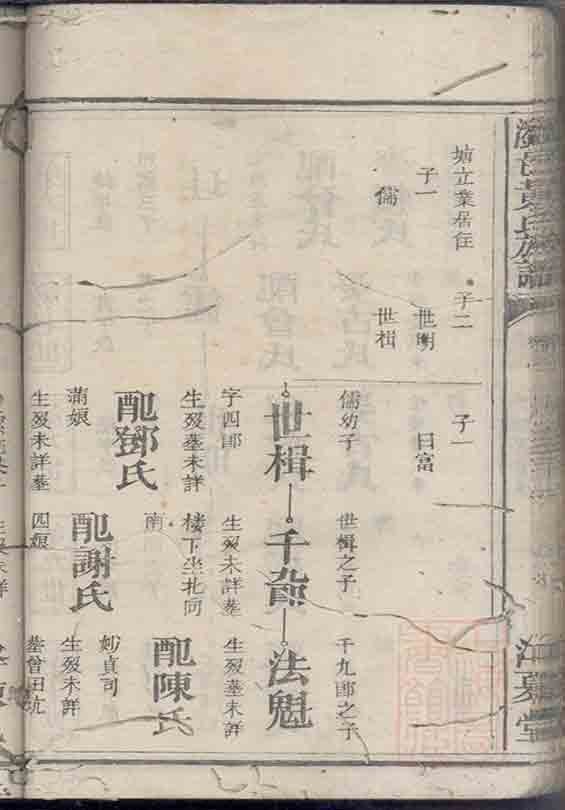 黄氏族譜
塘立業居住
子一
儒
子二
世明
世楫
子一
日富
儒幼子
世楫
字四郎
生歿墓未詳
配鄧氏
滿娘
生歿未詳墓
世楫之子
千
生歿未詳墓
樓下坐北向
南
配謝氏
四娘
千九郎之子
法魁
生歿墓未詳
配陳氏
妙貞司
生歿未詳
墓曾田坑
江夏堂